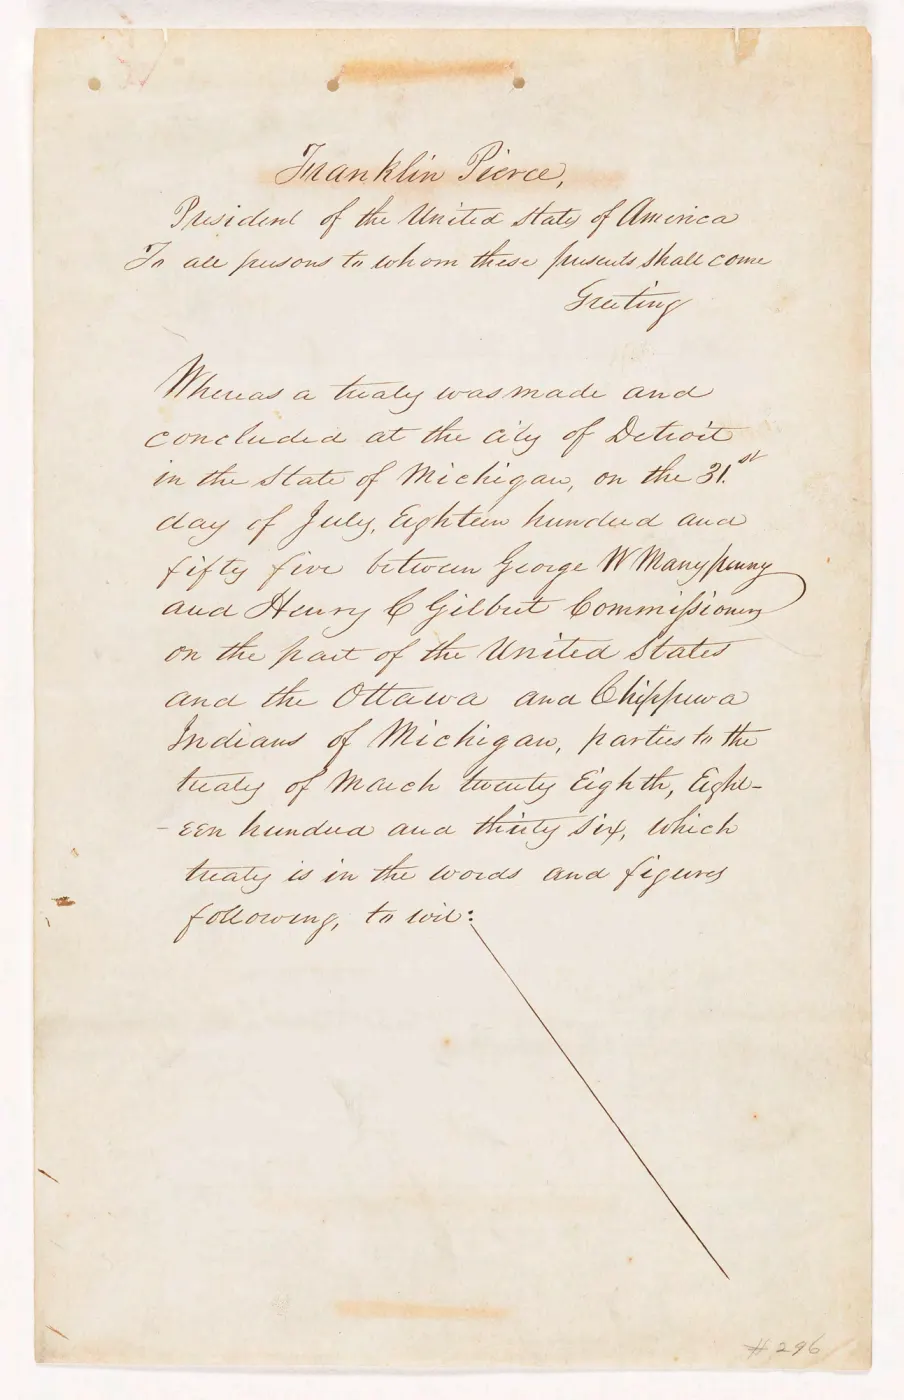 Franklin Pierce,
President of the United States of America
To all persons to whom these presents shall come
Greeting
Whereas a treaty was made and
concluded at the city of Detroit
in the State of Michigan, on the 31.st
day of July, Eighteen hundred and
fifty five between George W Manypenny
and Henry C Gilbert Commissioners
on the part of the United States
and the Ottawa and Chippewa
Indians of Michigan, parties to the
treaty of March twenty Eighth, Eight-
-een hundred and thirty six, which
treaty is in the words and figures
following, to wit:
# 296